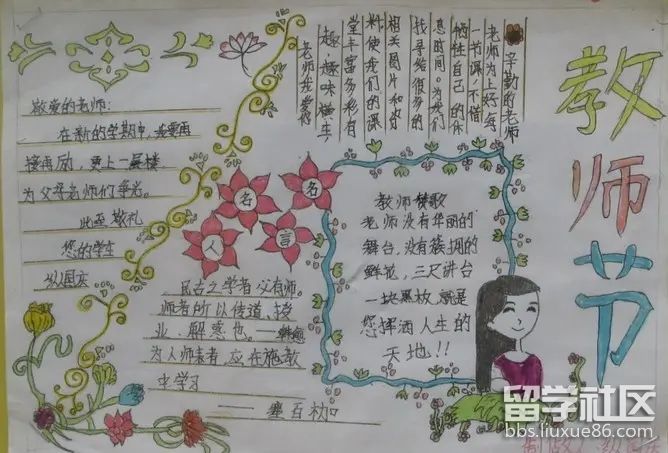 教师节
辛勤的老师
老师为上好每
一节课不惜
牺牲自己的休
息时间。为我们
找寻给很多的
相关图片和资
料,使我们的课
堂丰富多彩有
趣,趣味横生
老师我爱你
敬爱的老师:
在新的学期中,我要再
接再励,更上一层楼,
为父母老师们争光。
此至敬礼
您的学生
名人名言
教师赞歌
老师没有华丽的
舞台,没有簇拥的
鲜花,三尺讲台
一块黑板,就是
您挥洒人生的
天地!!
古之学者必有师。
师者所以传道,授
业、解惑也。——韩愈
为人师表者,应在施教
中学习
留学社区
bbs.liuxue86.com